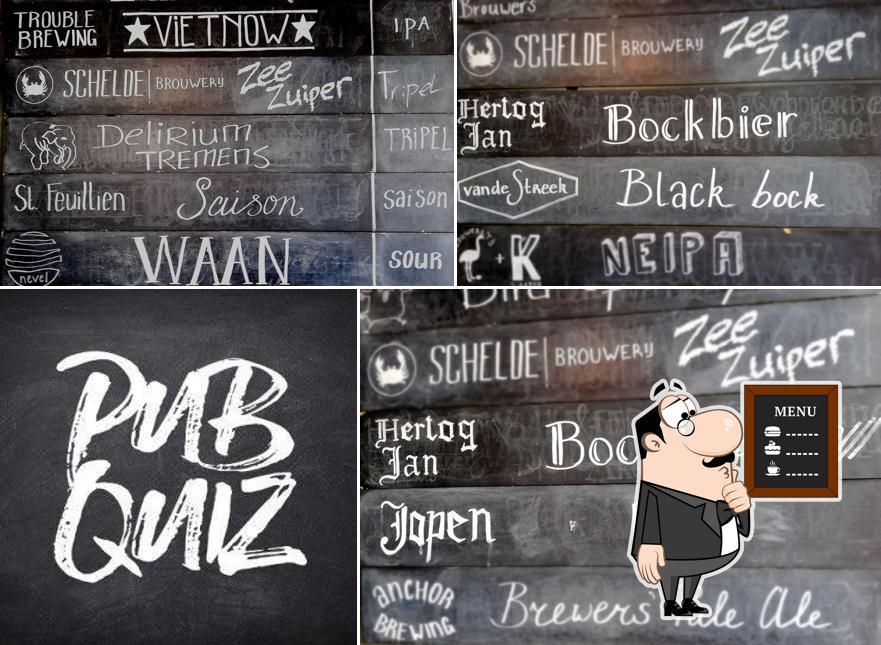 TROUBLE BREWING ★ViETNOW★ IPA
SCHELDE | BROUWERIJ Zee Zuiper Tripel
Delirium TREMENS TRiPEL
St. Feuillien Saison saison
nevel WAAN SOUR
Brouwers
SCHELDE | BROUWERIJ Zee Zuiper
Hertog Jan Bockbier
vandeStreek Black bock
+ K NEIPA
PUB
QUIZ
SCHELDE | BROUWERIJ Zee Zuiper
Hertog Jan
Jopen
ANCHOR BREWING Brewers' Ale
MENU